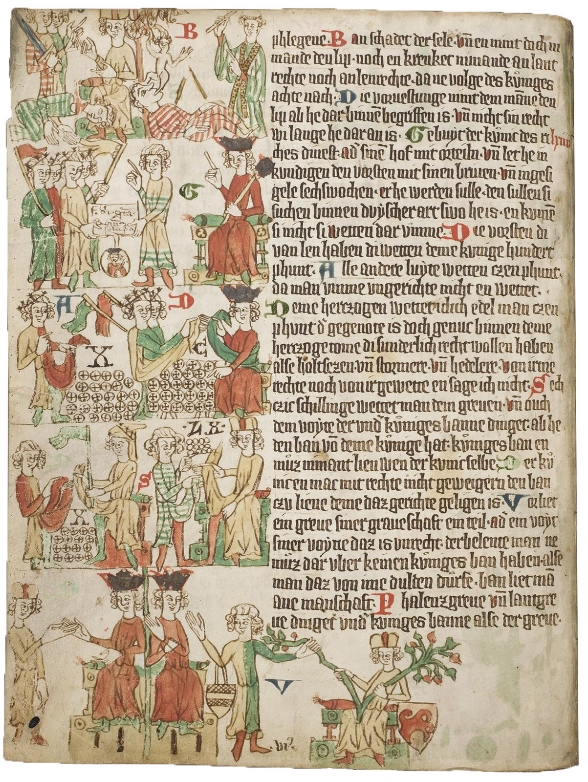 phlegene. Ban schadet der sele. vn̄ en nimt doch ni
mande den lip. noch en krenket nimande an lant
rechte noch an lenrechte. da ne volge des kvniges
achte nach. Die vorvestunge nimt dem manne den
lip ab he dar binne begriffen is. vn̄ nicht sin recht
wi lange he dar an is. Gebvyt der kvnic des ri
ches dinest. ad̓ sinē hof mit orteiln. vn̄ let he in
kvndigen den vorsten mit sinen briven. vn̄ ingesi
gele sechswochen. er he werden sulle. den sullen si
suchen binnen duyscher art swo he is. en kvmē
si nicht si wetten dar vmme. Die vorsten di
van len haben di wetten deme kvnige hundert
phunt. Alle andere luyte wetten czen phunt.
da man vmme vngerichte nicht en wettet.
Deme herczogen wettet iclich edel man czen
phunt d̓ genote is doch genuc binnen deme
herczogetvme di sunderlich recht wollen haben
alse holtsezen. vn̄ stormere. vn̄ hedelere. von irme
rechte noch von ir gewette en sage ich nicht. Sech
czic schillinge wettet man dem greven. vn̄ ouch
dem voyte der vnd̓ kvniges banne dinget. ab he
den ban vō deme kvnige hat. kvniges ban en
mvz nimant lien wen der kvnic selbe. Der kv
nic en mac mit rechte nicht geweigern den ban
czu liene deme daz gerichte geligen is. Vorliet
ein greve siner graveschaft ein teil. ad̓ ein voyt
siner voytie daz is vnrecht. der belente man ne
mvz dar vber keinen kvniges ban haben. alse
man daz von ime dulten dvrfe. ban liet mā
ane manschaft. Phalenzgreve vn̄ lantgre
ve dinget vnd̓ kvniges banne alse der greve.
B
G
A
D
X
C
LX
S
X
V